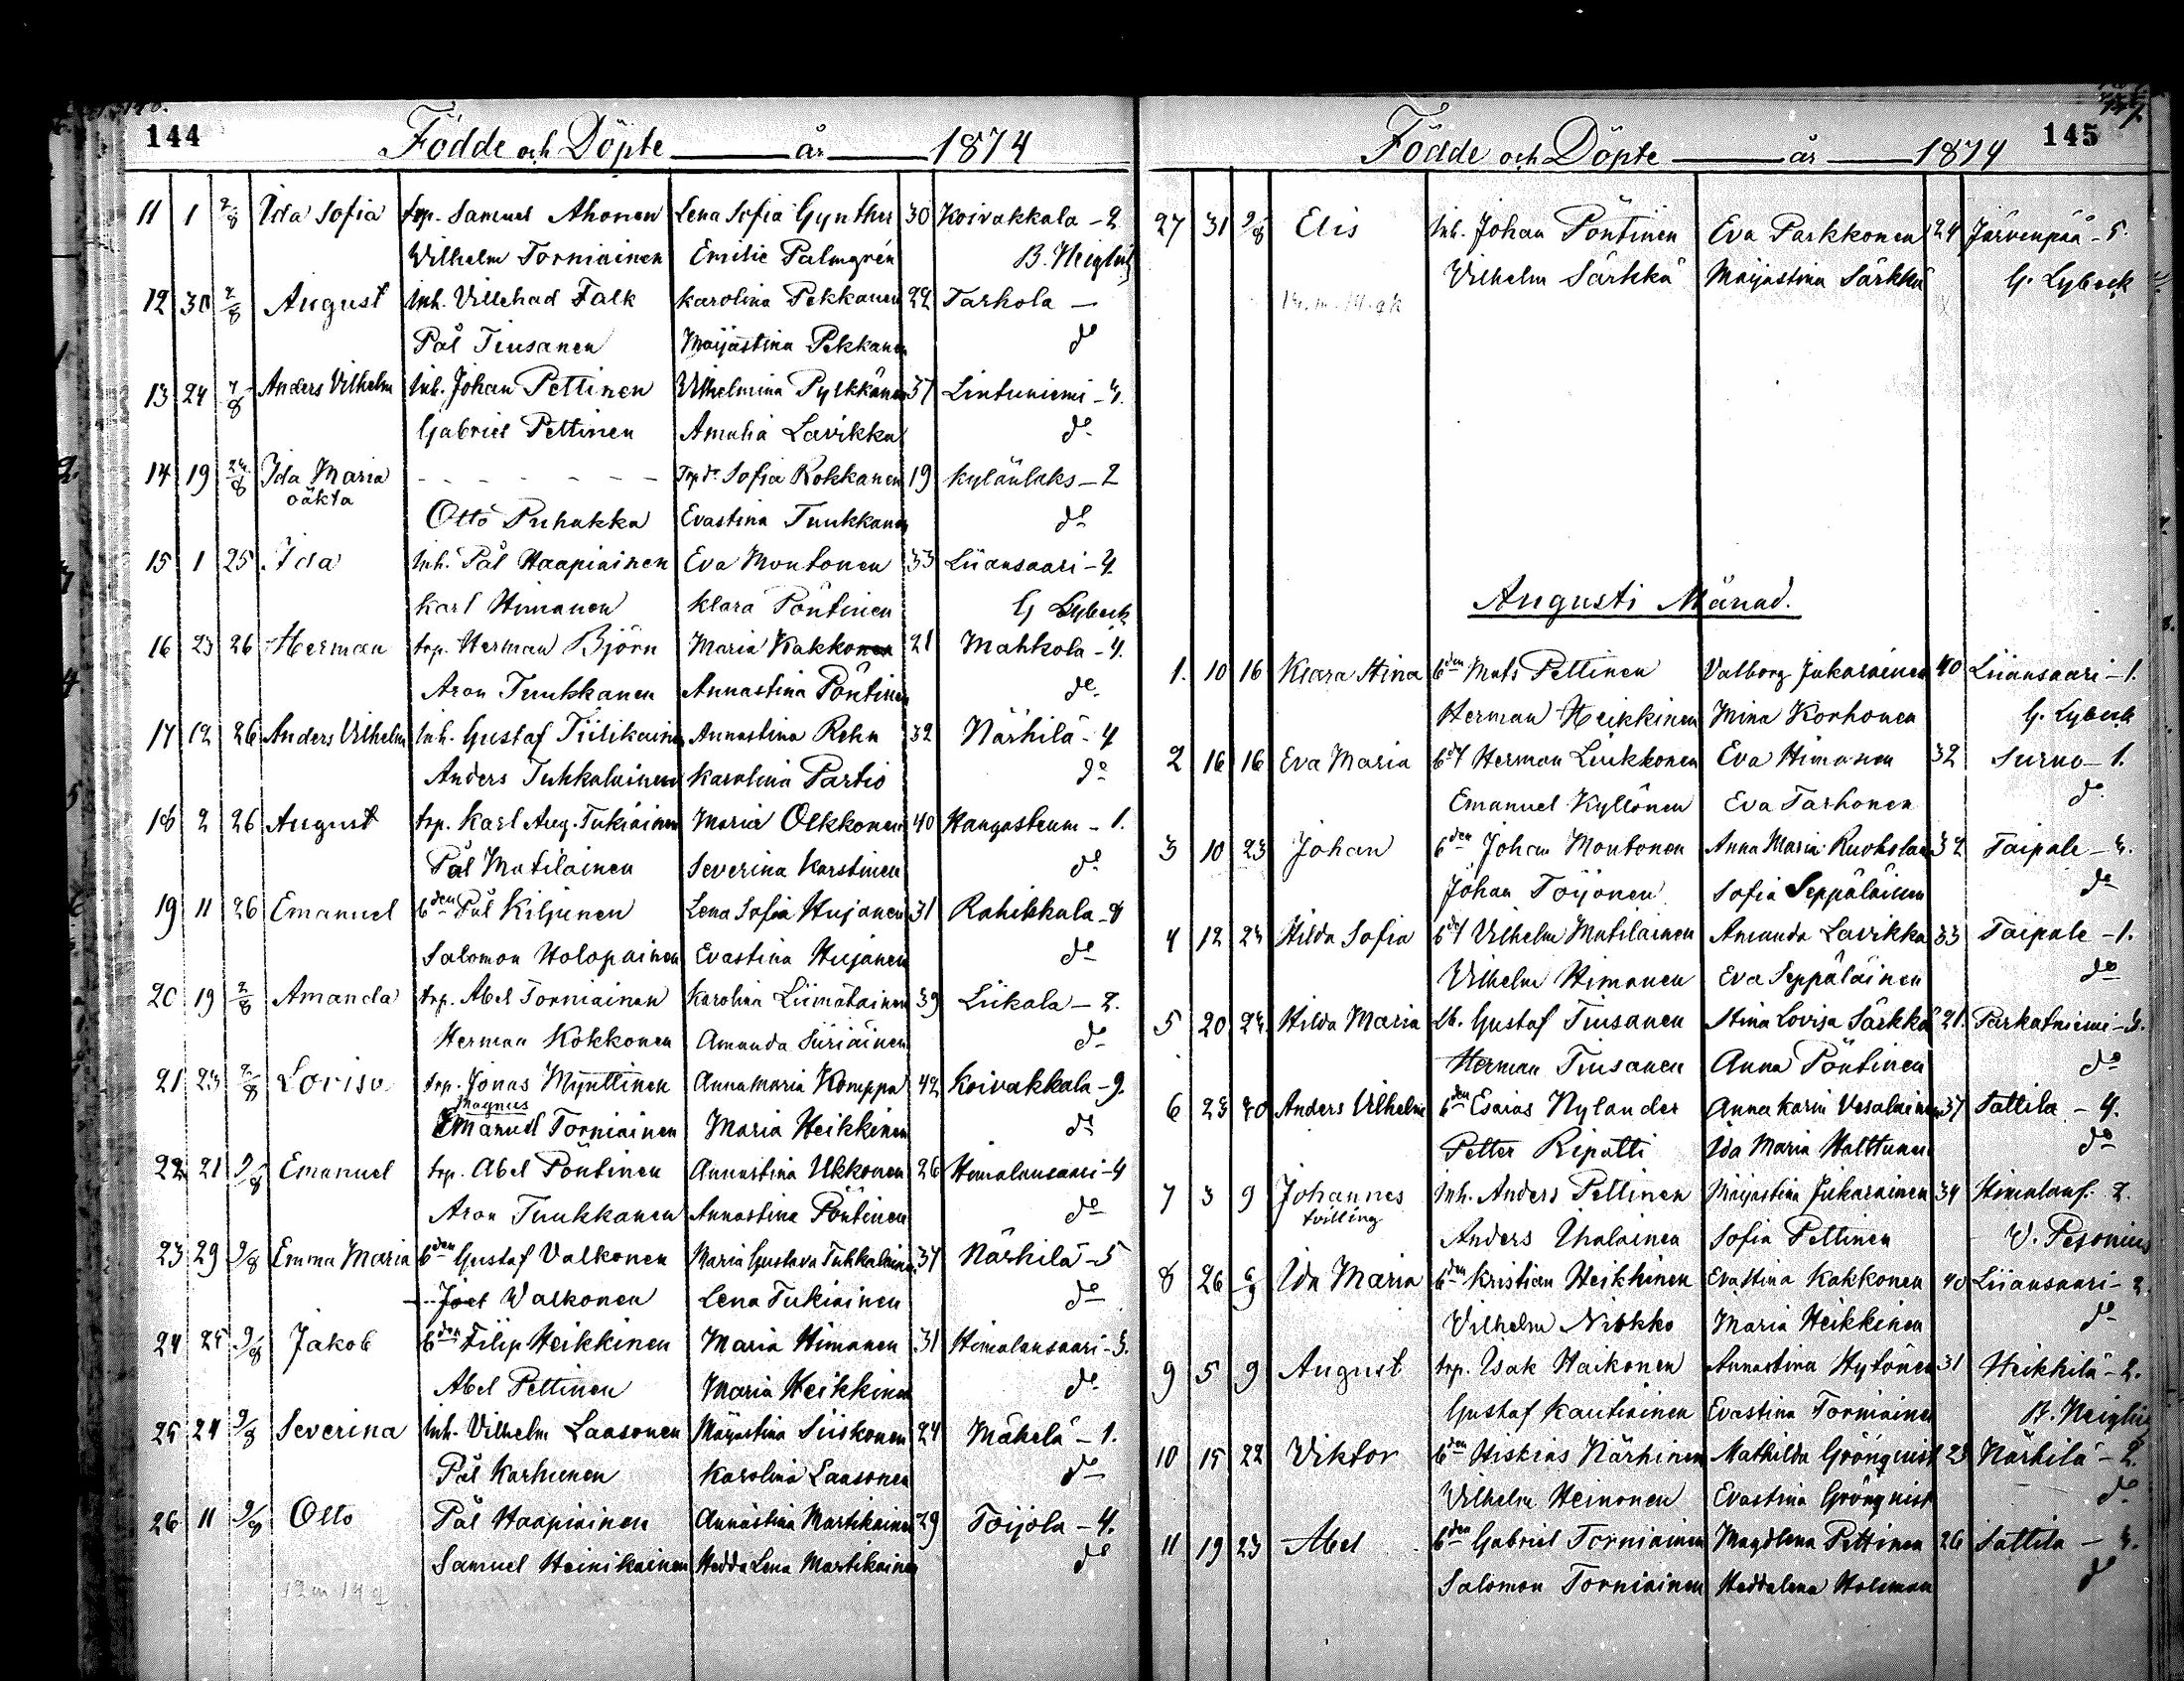 144
Födde och Döpte — år — 1874
11 1 2/8 Ida Sofia trp. Samuel Ahonen Lena Sofia Gynther 30 Koivakkala - 2
Wilhelm Torniainen Emilie Palmgrén B. Neiglick
12 30 2/8 August Inh. Villehad Falk Karolina Pekkanen 22 Tarkola -
Pål Tiusanen Maijastina Pekkanen do
13 24 7/8 Anders Vilhelm Inh. Johan Pettinen Vilhelmina Pylkkänen 37 Lintuniemi - 4.
Gabriel Pettinen Amalia Lavikka do
14 19 24/8 Ida Maria - - - - - - Trp dr Sofia Kokkanen 19 Kylänlaks - 2
oäkta
Otto Puhakka Evastina Tuukkanen do
15 1 25 Ida Inh. Pål Haapiainen Eva Montonen 33 Liiansaari - 4.
Karl Himanen Klara Pöntinen G Lybeck
16 23 26 Herman trp. Herman Björn Maria Kakkonen 21 Mahkola - 4.
Aron Tuukkanen Annastina Pöntinen do
17 12 26 Anders Vilhelm Inh. Gustaf Tiilikainen Annastina Rehn 32 Närhilä - 4
Anders Tuhkalainen Karolina Partio do
18 2 26 August trp. Karl Aug. Tukiainen Maria Olkkonen 40 Kangasteum - 1.
Pål Matilainen Severina Karstinen do
19 11 26 Emanuel bden Pål Kiljunen Lena Sofia Hujanen 31 Rahikkala - 4
Salomon Holopainen Evastina Hujanen do
20 19 2/8 Amanda trp. Abel Torniainen Karolina Liimatainen 39 Liikala - 2.
Herman Kokkonen Amanda Siiriäinen do
21 23 2/8 Lovisa trp. Jonas Mynttinen Annamaria Komppa 42 Koivakkala - 9.
Magnus
Emanuel Torniainen Maria Heikkinen do
22 21 9/8 Emanuel trp. Abel Pöntinen Annastina Ukkonen 26 Himalansaari - 4
Aron Tuukkanen Annastina Pöntinen do
23 29 9/8 Emma Maria bden Gustaf Valkonen Maria Gustava Tuhkalainen 37 Närhilä - 5
Joel Walkonen Lena Tukiainen do
24 25 9/8 Jakob bden Filip Heikkinen Maria Himanen 31 Himalansaari - 3.
Abel Pettinen Maria Heikkinen do
25 24 9/8 Severina Inh. Vilhelm Laasonen Maijastina Siiskonen 24 Mähelä - 1.
Pål Karhunen Karolina Laasonen do
26 11 9/8 Otto Pål Haapiainen Annastina Martikainen 29 Toijola - 4.
Samuel Heinikainen Hedda Lena Martikainen do
145
Födde och Döpte — år — 1874
27 31 2/8 Elis Inh. Johan Pöntinen Eva Parkkonen 24 Järvenpää - 5.
Vilhelm Särkkä Maijastina Särkkä G. Lybeck
Augusti Månad.
1. 10 16 Klara Stina bden Mats Pettinen Valborg Jukarainen 40 Liiansaari - 1.
Herman Heikkinen Mina Korhonen G. Lybeck
2 16 16 Eva Maria Herman Liukkonen Eva Himanen 32 Suruo - 1.
Emanuel Kyllönen Eva Tarhonen do
3 10 23 Johan bden Johan Montonen Anna Maria 32 Taipale - 4.
Johan Toijonen Sofia Seppäläinen do
4 12 23 Hilda Sofia Vilhelm Matilainen Amanda Lavikka 33 Taipale - 1.
Vilhelm Himanen Eva Seppäläinen do
5 20 24. Hilda Maria Gustaf Tiusanen Stina Lovisa Särkkä 21. Parkatniemi - 4.
Herman Tiusanen Anna Pöntinen do
6 23 30 Anders Vilhelm bden Esaias Nylander Anna Karin Vesalainen 37 Tattila - 4.
Petter Ripatti Ida Maria Halttunen do
7 3 9 Johannes Inh. Anders Pettinen Maijastina Jukarainen 34 Himalans. 2.
tvilling
Anders Ihalainen Sofia Pettinen V. Pesonius
8 26 6/9 Ida Maria bden Kristian Heikkinen Evastina Kakkonen 40 Liiansaari - 2
Vilhelm Nirkko Maria Heikkinen do
9 5 9 August trp. Isak Haikonen Annastina Hytönen 31 Heikkilä - 2.
Gustaf Kautiainen Evastina Torniainen B. Neiglick
10 15 22 Viktor bden Hiskias Närhinen Mathilda Grönqvist 23 Närhilä - 2.
Vilhelm Heinonen Evastina Grönqvist do
11 19 23 Abel bden Gabriel Torniainen Magdlena Pettinen 26 Sattila - 4.
Salomon Torniainen Heddalena Holsman do